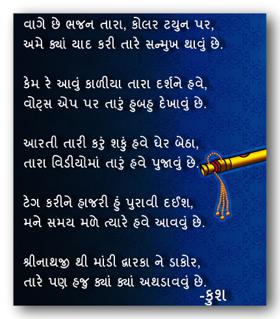 વાગે છે ભજન તારા, કોલર ટયુન પર,
અમે ક્યાં યાદ કરી તારે સન્મુખ થાવું છે.
કેમ રે આવું કાળીયા તારા દર્શને હવે,
વોટ્સ એપ પર તારું હુબહુ દેખાવું છે.
આરતી તારી કરું શકું હવે ઘેર બેઠા,
તારા વિડીયોમાં તારું હવે પુજાવું છે.
ટેગ કરીને હાજરી હું પુરાવી દઈશ,
મને સમય મળે ત્યારે હવે આવવું છે.
શ્રીનાથજી થી માંડી દ્વારકા ને ડાકોર,
તારે પણ હજુ ક્યાં ક્યાં અથડાવવું છે.
-કુશ